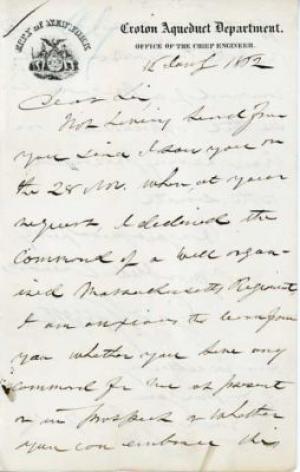 CITY OF NEW YORK
Croton Aqueduct Department.
OFFICE OF THE CHIEF ENGINEER.
1862
Dear Sir,
Not having heard from
you since I saw you on
the 28 Nov. when, at your
request, I declined the
Command of a well organ-
ized Massachusetts Regiment,
I am anxious to learn from
you whether you have any
command for me at present
or in prospect & whether
you can embrace this